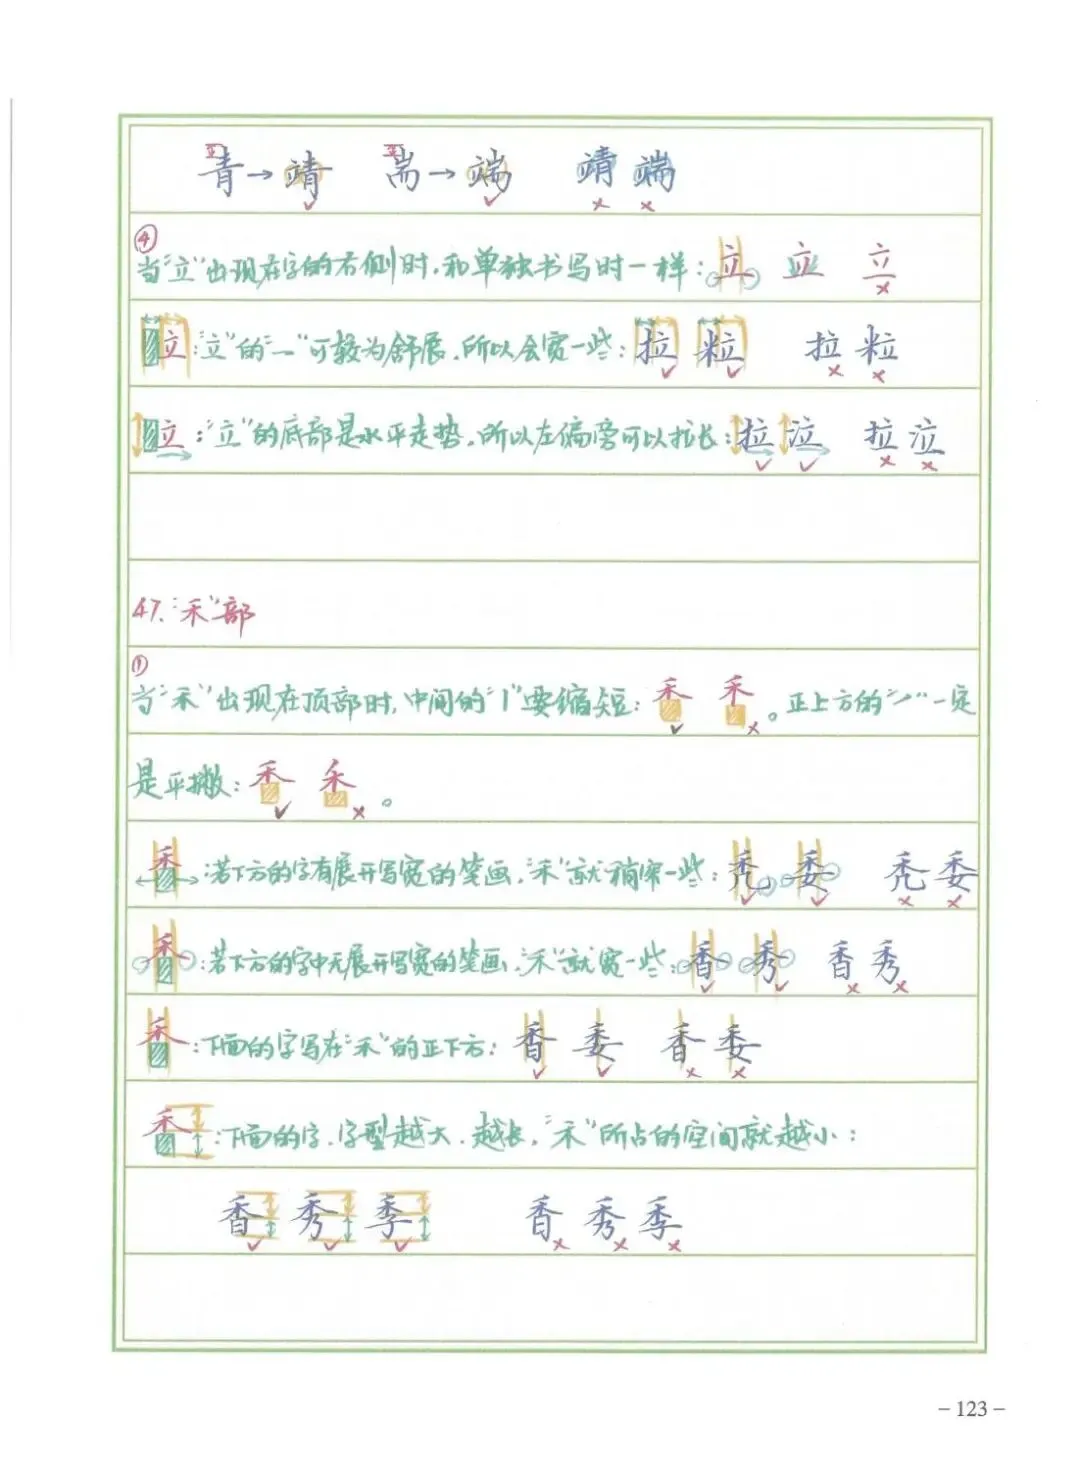 青→靖 耑→端 靖 端
④
当“立”出现在字的右侧时,和单独书写时一样:立 立 立
立:“立”的“一”可较为舒展,所以会宽一些:拉 粒 拉 粒
立:“立”的底部是水平走势,所以左偏旁可以拉长:拉 泣 拉 泣
47.“禾”部
①
当“禾”出现在顶部时,中间的“丨”要缩短:禾 禾。正上方的“㇒”一定
是平撇:禾 禾。
禾:若下方的字有展开写宽的笔画,“禾”就稍窄一些:秃 委 秃 委
禾:若下方的字中无展开写宽的笔画,“禾”就宽一些:香 秀 香 秀
禾:下面的字写在“禾”的正下方:香 委 香 委
禾:下面的字,字型越大、越长,“禾”所占的空间就越小:
香 秀 季 香 秀 季
- 123 -